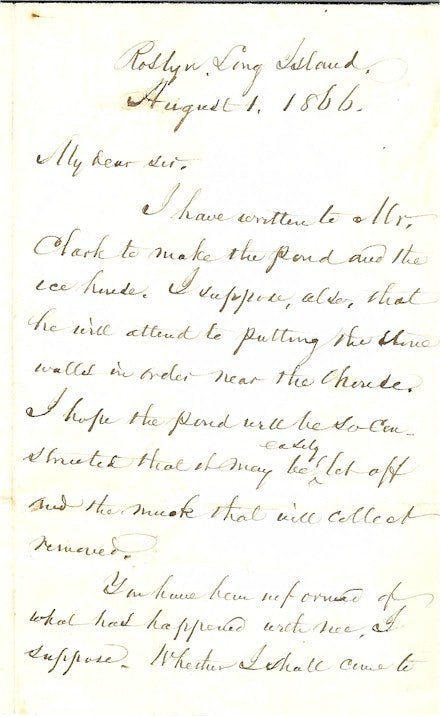 Roslyn. Long Island.
August 1. 1866.
My dear sir.
I have written to Mr.
Clark to make the pond and the
ice house. I suppose, also, that
he will attend to putting the stone
walls in order near the house.
I hope the pond will be so con-
structed that it may be easily let off
and the muck that will collect
removed.
You have been informed of
what has happened with me, I
suppose. Whether I shall come to